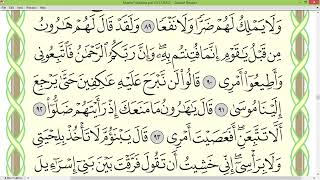 وَلَا يَمْلِكُ لَهُمْ ضَرًّا وَلَا نَفْعًا ٨٩ وَلَقَدْ قَالَ لَهُمْ هَٰرُونُ
مِن قَبْلُ يَٰقَوْمِ إِنَّمَا فُتِنتُم بِهِۦ وَإِنَّ رَبَّكُمُ ٱلرَّحْمَٰنُ فَٱتَّبِعُونِى
وَأَطِيعُوٓا۟ أَمْرِى ٩٠ قَالُوا۟ لَن نَّبْرَحَ عَلَيْهِ عَٰكِفِينَ حَتَّىٰ يَرْجِعَ
إِلَيْنَا مُوسَىٰ ٩١ قَالَ يَٰهَٰرُونُ مَا مَنَعَكَ إِذْ رَأَيْتَهُمْ ضَلُّوٓا۟ ٩٢
أَلَّا تَتَّبِعَنِ أَفَعَصَيْتَ أَمْرِى ٩٣ قَالَ يَبْنَؤُمَّ لَا تَأْخُذْ بِلِحْيَتِى
وَلَا بِرَأْسِىٓ إِنِّى خَشِيتُ أَن تَقُولَ فَرَّقْتَ بَيْنَ بَنِىٓ إِسْرَٰٓءِيلَ